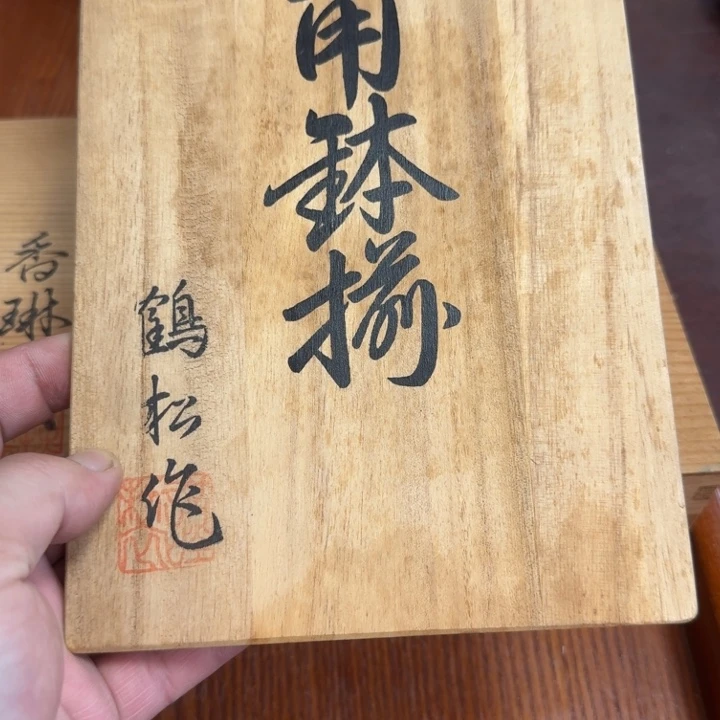 鉢揃
鶴松作
香琳